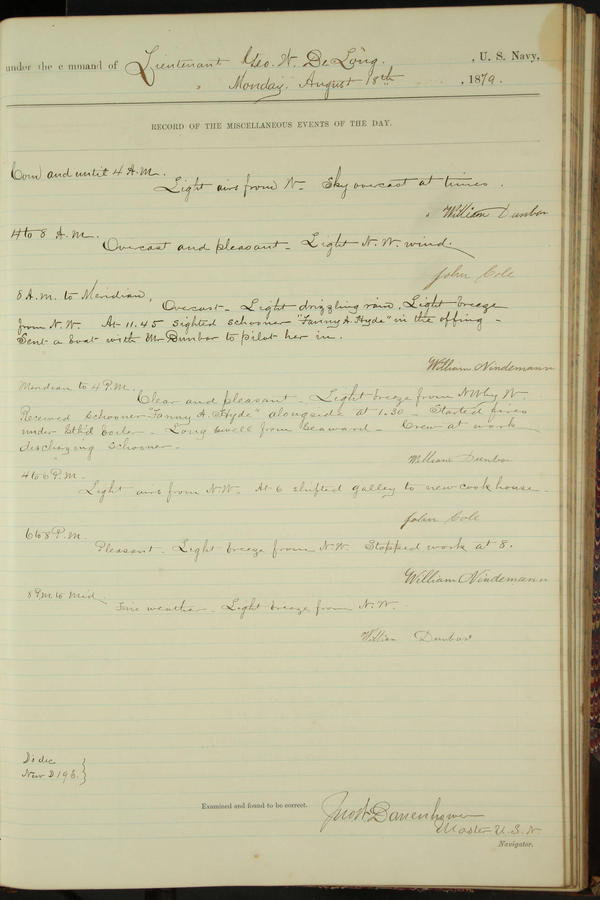 under the command of Lieutenant Geo. W. De Long. , U. S. Navy,
Monday. August 18th , 1879.
RECORD OF THE MISCELLANEOUS EVENTS OF THE DAY.
Com and until 4 A.M.
Light airs from N. Sky overcast at times.
William Dunbar
4 to 8 A.M.
Overcast and pleasant - Light N.W. wind.
John Cole
8 A.M. to Meridian,
Overcast - Light drizzling rain. Light breeze
from N.W. At 11.45 sighted schooner "Fanny A. Hyde" in the offing -
Sent a boat with Mr Dunbar to pilot her in.
William Nindemann
Meridian to 4 P.M.
Clear and pleasant - Light breeze from NW by W.
Received schooner "Fanny A. Hyde" alongside at 1.30 - Started fires
under Stb'd boiler - Long swell from seaward - Crew at work
discharging schooner -
William Dunbar
4 to 6 P.M.
Light airs from N.W. At 6 shifted galley to new cook house -
John Cole
6 to 8 P.M.
Pleasant. Light breeze from N.W. Stopped work at 8.
William Nindemann
8 P.M. to Mid.
Fine weather - Light breeze from N.W.
William Dunbar
New D 196.
Examined and found to be correct.
Danenhower
Master U.S.N
Navigator.